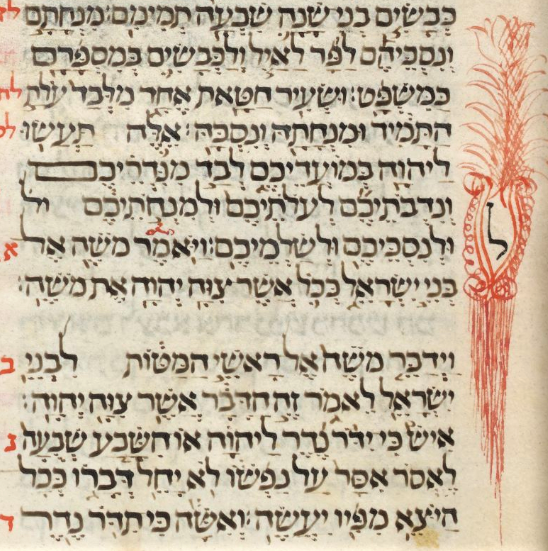 כבשים בני שנה שבעה תמימם׃ מנחתם
ונסכיהם לפר לאיל ולכבשים במספרם
כמשפט׃ ושעיר חטאת אחד מלבד עלת
התמיד ומנחתה ונסכה׃ אלה תעשו
ליהוה במועדיכם לבד מנדריכם
ונדבתיכם לעלתיכם ולמנחתיכם
ולנסכיכם ולשלמיכם׃ ויאמר משה אל
בני ישראל ככל אשר צוה יהוה את משה׃
וידבר משה אל ראשי המטות לבני
ישראל לאמר זה הדבר אשר צוה יהוה׃
איש כי ידר נדר ליהוה או השבע שבעה
לאסר אסר על נפשו לא יחל דברו ככל
היצא מפיו יעשה׃ ואשה כי תדר נדר
ל
א
ב
ג
ד